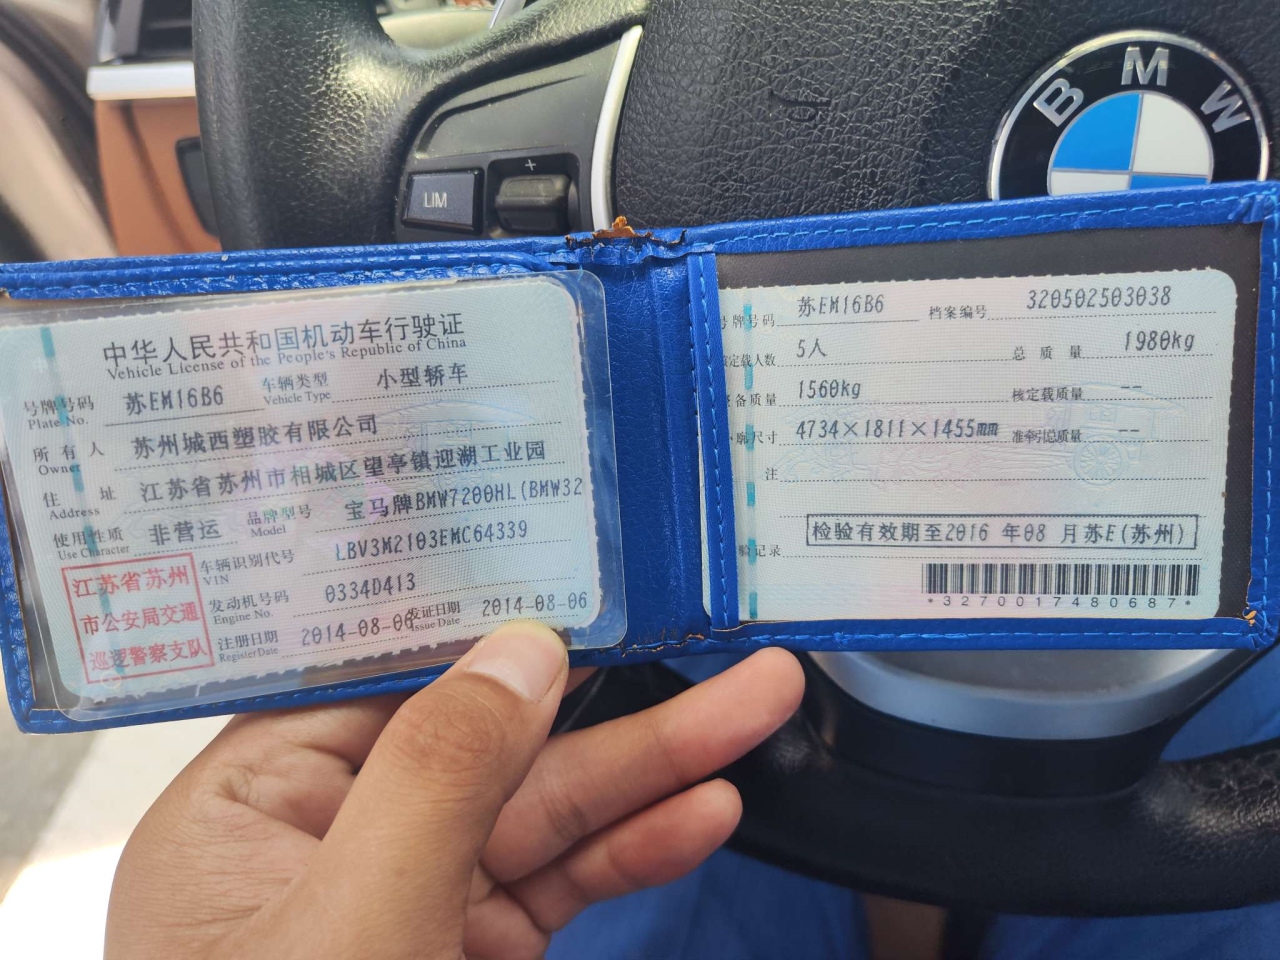 BMW
LIM
+
中华人民共和国机动车行驶证
Vehicle License of the People's Republic of China
号牌号码 苏EM16B6 车辆类型 小型轿车
Plate No. Vehicle Type
所有人 苏州城西塑胶有限公司
Owner
住址 江苏省苏州市相城区望亭镇迎湖工业园
Address
使用性质 非营运 品牌型号 宝马牌BMW7200HL(BMW32
Use Character Model
车辆识别代号 LBV3M2103EMC64339
VIN
发动机号码 0334D413
Engine No.
注册日期 2014-08-06 发证日期 2014-08-06
Register Date Issue Date
江苏省苏州
市公安局交通
巡逻警察支队
号牌号码 苏EM16B6 档案编号 320502503038
定载人数 5人 总质量 1980kg
备质量 1560kg 核定载质量 --
廓尺寸 4734×1811×1455mm 准牵引总质量 --
注
检验有效期至2016 年08 月苏E(苏州)
验记录
*3270017480687*